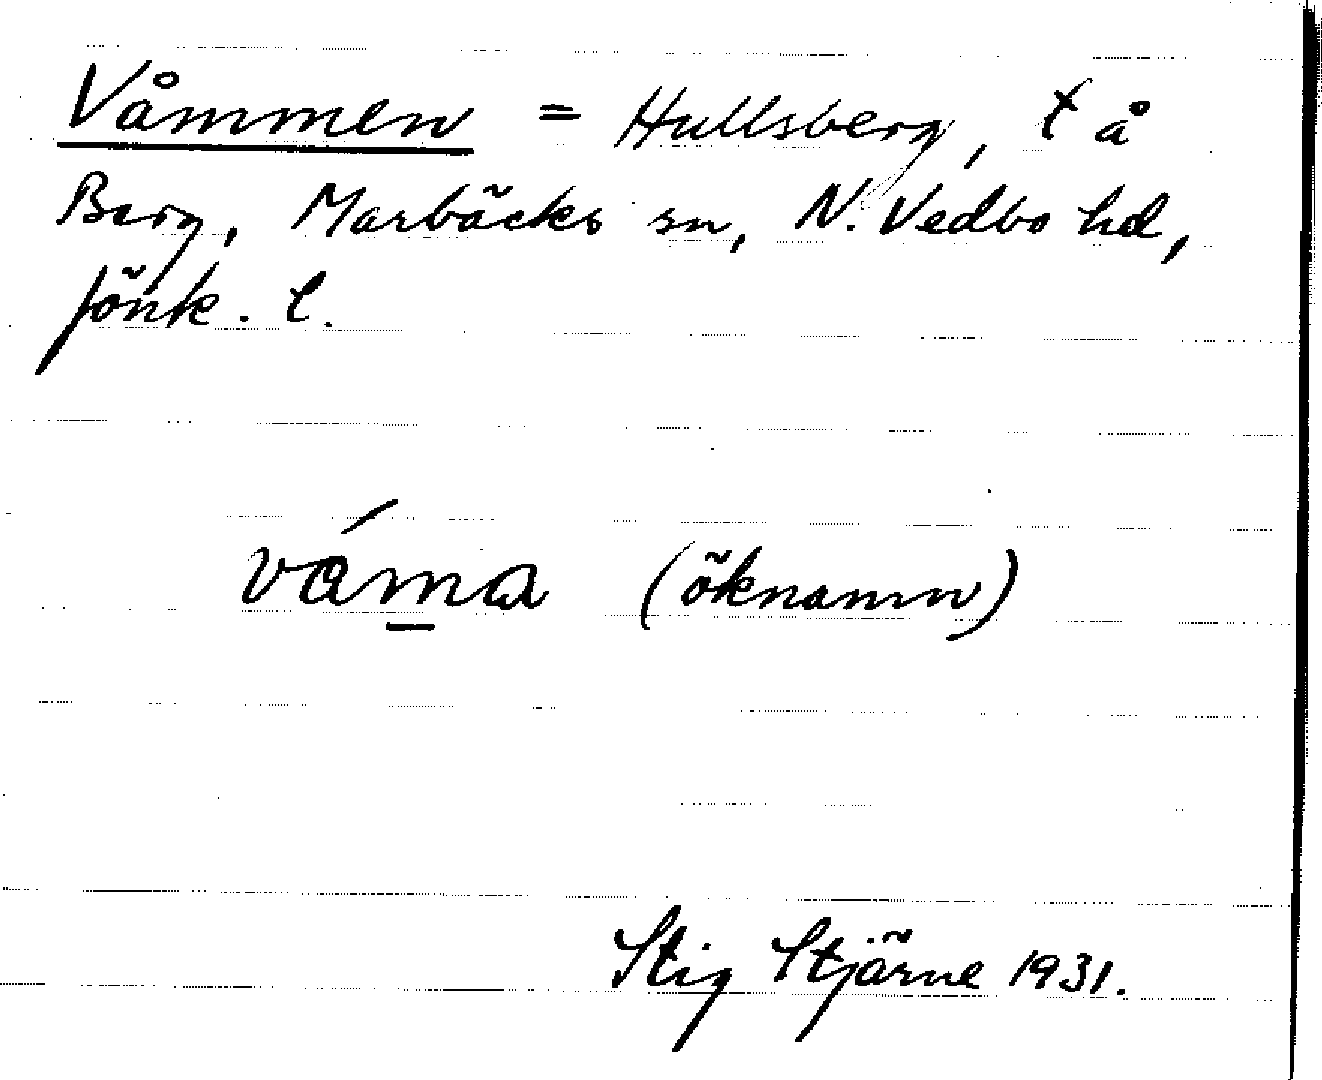 Våmmen = Hullsberg, t å
Berg, Marbäcks sn, N. Vedbo hd,
Jönk. l.
váma (öknamn)
Stig Stjärne 1931.